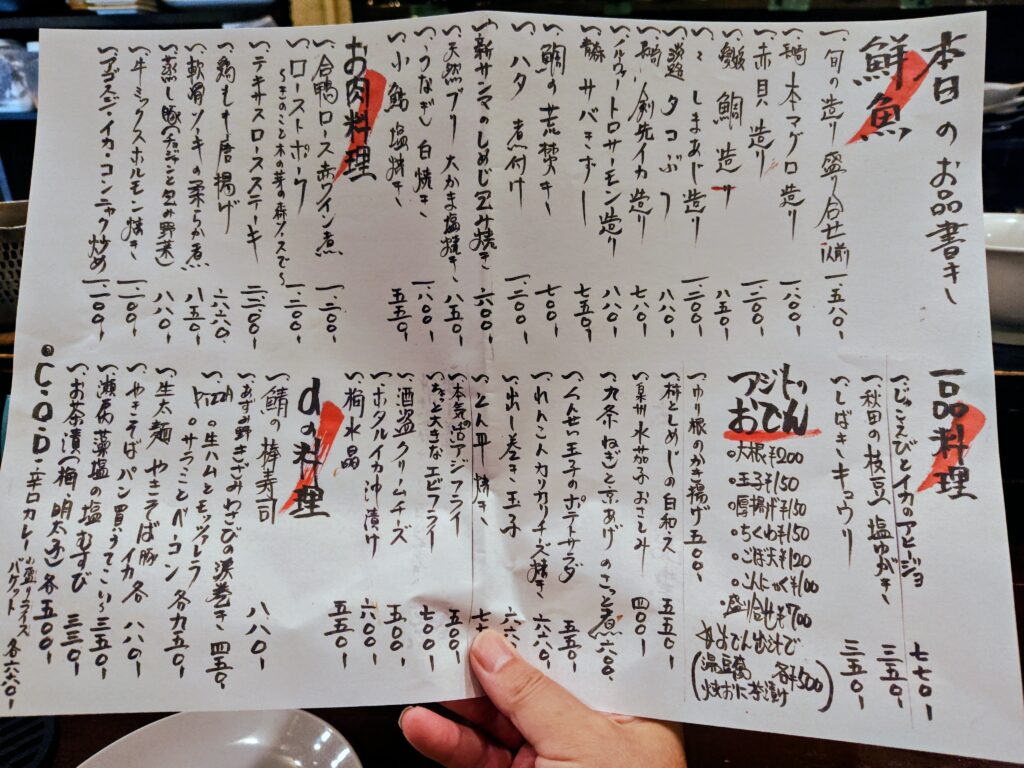 本日のお品書き
鮮魚
一、旬の造り盛り合せ 一、五八〇-
一、長崎 本マグロ造り 一、八〇〇-
一、赤貝造り 一、二〇〇-
鯛造り 八五〇-
しまあじ造り 一、二〇〇-
一、淡路 タコぶつ 八八〇-
一、長崎 剣先イカ造り 七八〇-
一、ノルウェートロサーモン造り 八八〇-
サバきずし 七五〇-
一、鯛の荒焚き 七〇〇-
一、ハタ 煮付け 一、二〇〇-
一、新サンマのしめじ包み焼き 六〇〇-
一、天然ブリ 大かま塩焼き 八五〇-
一、うなぎ 白焼き 一、八〇〇-
一、小鮎 塩焼き 五五〇-
お肉料理
一、合鴨ロース赤ワイン煮 一、二〇〇-
一、ローストポーク 一、二〇〇-
一、テキサスロースステーキ 二、二〇〇-
一、鶏もも唐揚げ 六八〇-
一、軟骨ソーキの柔らか煮 八五〇-
一、蒸し豚(チョジャンと包み野菜) 八八〇-
一、牛ミックスホルモン焼き 一、二〇〇-
一、アゴスジ・イカ・コンニャク炒め 一、一〇〇-
一品料理
一、じゃこえびとイカのアヒージョ 七七〇-
一、秋田の枝豆 塩ゆがき 三五〇-
一、しばきキョウリ 三五〇-
アジトの
おでん
○大根¥200
○玉子¥150
○厚揚げ¥150
○ちくわ¥150
○ごぼ天¥120
○こんにゃく¥100
○盛り合せ¥700
おでん出汁で
(湯豆腐
焼おにぎり茶漬け 各¥500)
一、ゆり根のかき揚げ 五〇〇、
一、柿としめじの白和え 五五〇-
一、泉州水茄子おさしみ 四〇〇-
一、九条ねぎと京あげのさっと煮 六〇〇、
一、くんせい玉子のポテサラダ 五五〇-
一、れんこんカリカリチーズ焼き 六八〇-
一、出し巻き玉子
一、とん平焼き
一、本気造アジフライ 五〇〇-
一、ちょっと大きなエビフライ 七〇〇-
一、酒盗クリームチーズ 五〇〇-
一、ホタルイカ沖漬け 六〇〇-
一、梅水晶 五五〇-
dの料理
一、鯖の棒寿司 八八〇-
一、あずみ野きざみわさびの涙巻き 四五〇-
一、Pizza ○生ハムとモッツァレラ
○サラミとベーコン 各九五〇-
一、生太麺 やきそば 豚 イカ 各八八〇-
一、やきそばパン買うてこい〜 三五〇-
一、瀬戸内藻塩の塩むすび 三三〇-
一、お茶漬(梅 明太子) 各五〇〇-
●C.O.D-辛口カレー 小盛りライス バケット 各六八〇-